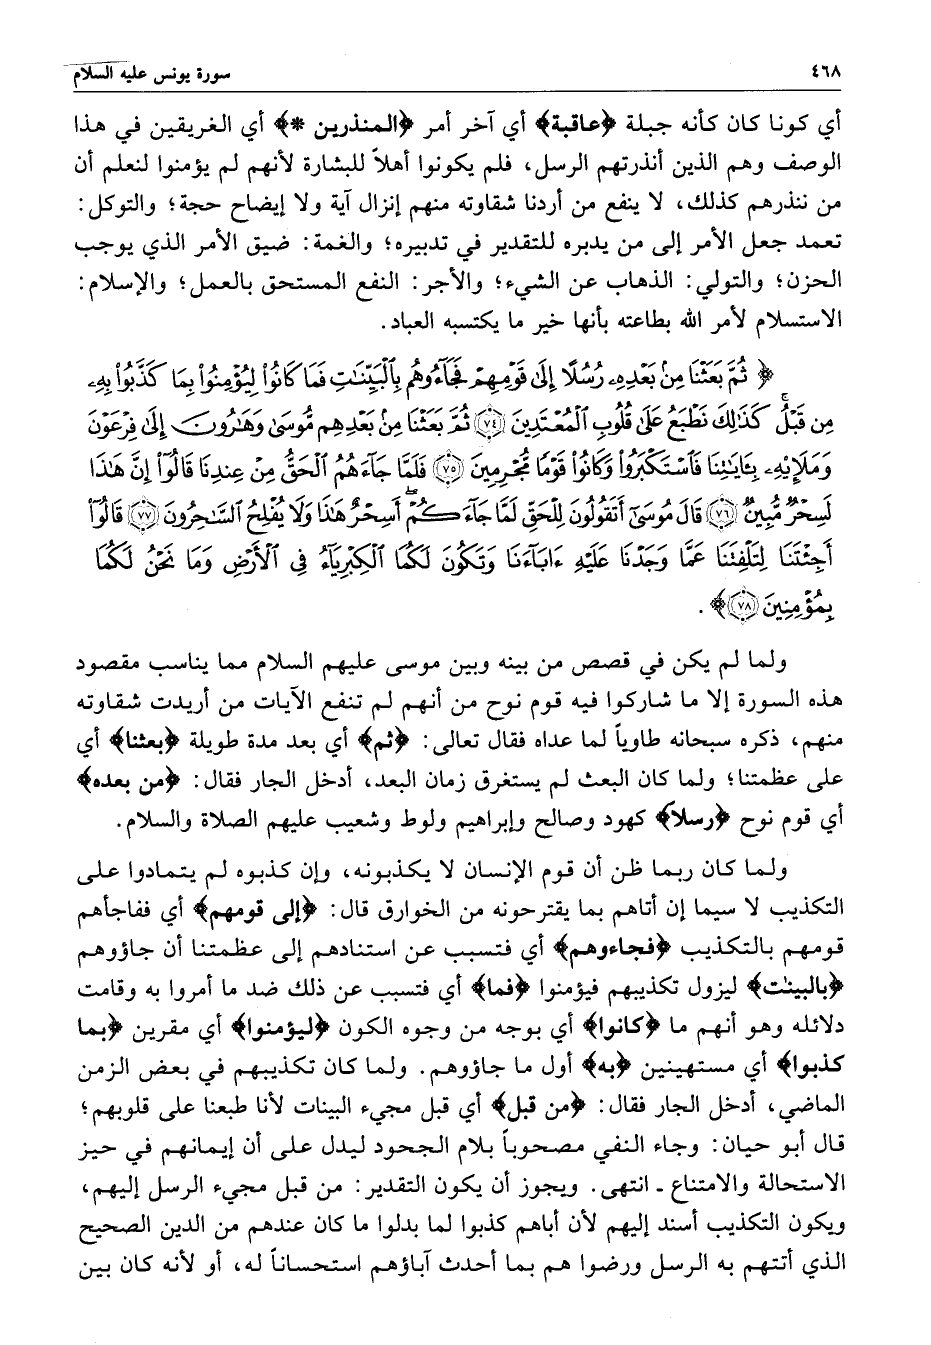 ٤٦٨
سورة يونس عليه السلام
أي كونا كان كأنه جبلة ﴿عاقبة﴾ أي آخر أمر ﴿المنذرين *﴾ أي الغريقين في هذا
الوصف وهم الذين أنذرتهم الرسل، فلم يكونوا أهلاً للبشارة لأنهم لم يؤمنوا لنعلم أن
من ننذرهم كذلك، لا ينفع من أردنا شقاوته منهم إنزال آية ولا إيضاح حجة؛ والتوكل:
تعمد جعل الأمر إلى من يدبره للتقدير في تدبيره؛ والغمة: ضيق الأمر الذي يوجب
الحزن؛ والتولي: الذهاب عن الشيء؛ والأجر: النفع المستحق بالعمل؛ والإسلام:
الاستسلام لأمر الله بطاعته بأنها خير ما يكتسبه العباد.
﴿ ثُمَّ بَعَثْنَا مِنْ بَعْدِهِۦ رُسُلًا إِلَىٰ قَوْمِهِمْ فَجَآءُوهُم بِٱلْبَيِّنَٰتِ فَمَا كَانُوا۟ لِيُؤْمِنُوا۟ بِمَا كَذَّبُوا۟ بِهِۦ
مِن قَبْلُ ۚ كَذَٰلِكَ نَطْبَعُ عَلَىٰ قُلُوبِ ٱلْمُعْتَدِينَ ﴿٧٤﴾ ثُمَّ بَعَثْنَا مِنۢ بَعْدِهِم مُّوسَىٰ وَهَٰرُونَ إِلَىٰ فِرْعَوْنَ
وَمَلَإِي۟هِۦ بِـَٔايَٰتِنَا فَٱسْتَكْبَرُوا۟ وَكَانُوا۟ قَوْمًا مُّجْرِمِينَ ﴿٧٥﴾ فَلَمَّا جَآءَهُمُ ٱلْحَقُّ مِنْ عِندِنَا قَالُوٓا۟ إِنَّ هَٰذَا
لَسِحْرٌ مُّبِينٌ ﴿٧٦﴾ قَالَ مُوسَىٰٓ أَتَقُولُونَ لِلْحَقِّ لَمَّا جَآءَكُمْ ۖ أَسِحْرٌ هَٰذَا وَلَا يُفْلِحُ ٱلسَّٰحِرُونَ ﴿٧٧﴾ قَالُوٓا۟
أَجِئْتَنَا لِتَلْفِتَنَا عَمَّا وَجَدْنَا عَلَيْهِ ءَابَآءَنَا وَتَكُونَ لَكُمَا ٱلْكِبْرِيَآءُ فِى ٱلْأَرْضِ وَمَا نَحْنُ لَكُمَا
بِمُؤْمِنِينَ ﴿٧٨﴾ ﴾.
ولما لم يكن في قصص من بينه وبين موسى عليهم السلام مما يناسب مقصود
هذه السورة إلا ما شاركوا فيه قوم نوح من أنهم لم تنفع الآيات من أريدت شقاوته
منهم، ذكره سبحانه طاوياً لما عداه فقال تعالى: ﴿ثم﴾ أي بعد مدة طويلة ﴿بعثنا﴾ أي
على عظمتنا؛ ولما كان البعث لم يستغرق زمان البعد، أدخل الجار فقال: ﴿من بعده﴾
أي قوم نوح ﴿رسلاً﴾ كهود وصالح وإبراهيم ولوط وشعيب عليهم الصلاة والسلام.
ولما كان ربما ظن أن قوم الإنسان لا يكذبونه، وإن كذبوه لم يتمادوا على
التكذيب لا سيما إن أتاهم بما يقترحونه من الخوارق قال: ﴿إلى قومهم﴾ أي ففاجأهم
قومهم بالتكذيب ﴿فجاءوهم﴾ أي فتسبب عن استنادهم إلى عظمتنا أن جاؤوهم
﴿بالبينٰت﴾ ليزول تكذيبهم فيؤمنوا ﴿فما﴾ أي فتسبب عن ذلك ضد ما أمروا به وقامت
دلائله وهو أنهم ما ﴿كانوا﴾ أي بوجه من وجوه الكون ﴿ليؤمنوا﴾ أي مقرين ﴿بما
كذبوا﴾ أي مستهينين ﴿به﴾ أول ما جاؤوهم. ولما كان تكذيبهم في بعض الزمن
الماضي، أدخل الجار فقال: ﴿من قبل﴾ أي قبل مجيء البينات لأنا طبعنا على قلوبهم؛
قال أبو حيان: وجاء النفي مصحوباً بلام الجحود ليدل على أن إيمانهم في حيز
الاستحالة والامتناع ـ انتهى. ويجوز أن يكون التقدير: من قبل مجيء الرسل إليهم،
ويكون التكذيب أسند إليهم لأن أباهم كذبوا لما بدلوا ما كان عندهم من الدين الصحيح
الذي أتتهم به الرسل ورضوا هم بما أحدث آباؤهم استحساناً له، أو لأنه كان بين